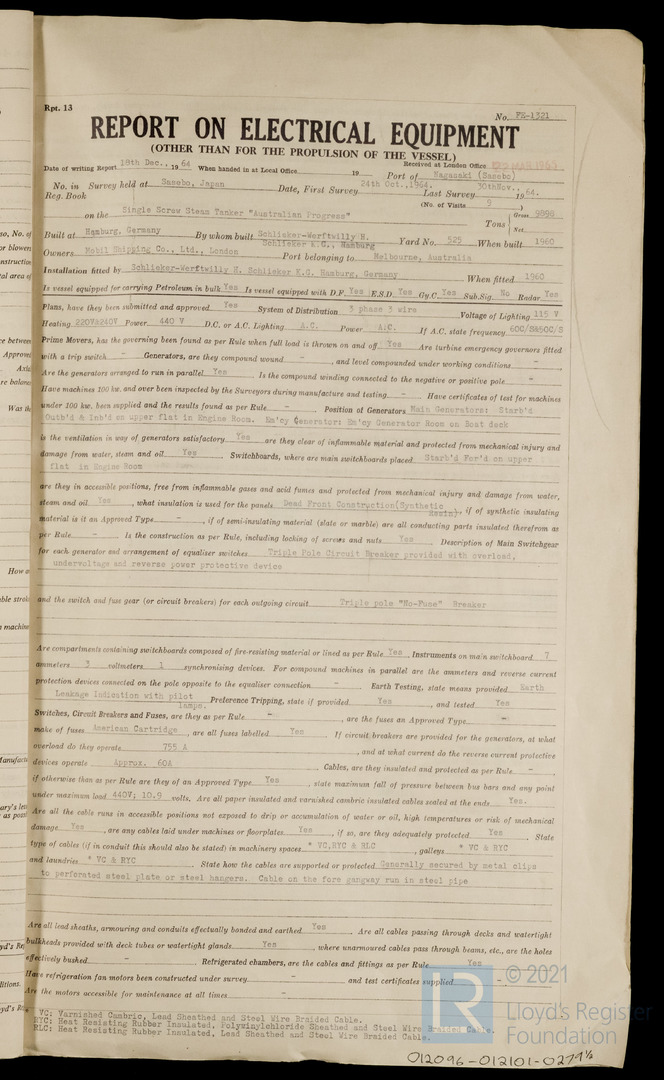 Rpt. 13
No. FE-1321
REPORT ON ELECTRICAL EQUIPMENT
(OTHER THAN FOR THE PROPULSION OF THE VESSEL)
Date of writing Report 18th Dec., 1964 When handed in at Local Office 19 Received at London Office
Port of Nagasaki (Sasebo)
No. in Survey held at Sasebo, Japan Date, First Survey 24th Oct., 1964. Last Survey 30th Nov., 1964.
Reg. Book (No. of Visits 9 )
on the Single Screw Steam Tanker "Australian Progress" Tons Gross 9898 Net
Built at Hamburg, Germany By whom built Schlieker-Werftwilly H. Schlieker K.G., Hamburg Yard No. 525 When built 1960
Owners Mobil Shipping Co., Ltd., London Port belonging to Melbourne, Australia
Installation fitted by Schlieker-Werftwilly H. Schlieker K.G. Hamburg, Germany When fitted 1960
Is vessel equipped for carrying Petroleum in bulk Yes Is vessel equipped with D.F. Yes E.S.D. Yes Gy.C Yes Sub.Sig. No Radar Yes
Plans, have they been submitted and approved Yes System of Distribution 3 phase 3 wire Voltage of Lighting 115 V
Heating 220V&240V Power 440 V D.C. or A.C. Lighting A.C. Power A.C. If A.C. state frequency 60C/S&50C/S
Prime Movers, has the governing been found as per Rule when full load is thrown on and off Yes Are turbine emergency governors fitted
with a trip switch - Generators, are they compound wound - , and level compounded under working conditions -
Are the generators arranged to run in parallel Yes Is the compound winding connected to the negative or positive pole -
Have machines 100 kw. and over been inspected by the Surveyors during manufacture and testing - Have certificates of test for machines
under 100 kw. been supplied and the results found as per Rule - Position of Generators Main Generators: Starb'd
Outb'd & Inb'd on upper flat in Engine Room. Em'cy Generator: Em'cy Generator Room on Boat deck
Is the ventilation in way of generators satisfactory Yes are they clear of inflammable material and protected from mechanical injury and
damage from water, steam and oil Yes Switchboards, where are main switchboards placed Starb'd For'd on upper
flat in Engine Room
are they in accessible positions, free from inflammable gases and acid fumes and protected from mechanical injury and damage from water,
steam and oil Yes , what insulation is used for the panels Dead Front Construction(Synthetic Resin) , if of synthetic insulating
material is it an Approved Type , if of semi-insulating material (slate or marble) are all conducting parts insulated therefrom as
per Rule - Is the construction as per Rule, including locking of screws and nuts Yes Description of Main Switchgear
for each generator and arrangement of equaliser switches Triple Pole Circuit Breaker provided with overload,
undervoltage and reverse power protective device
and the switch and fuse gear (or circuit breakers) for each outgoing circuit Triple pole "No-Fuse" Breaker
Are compartments containing switchboards composed of fire-resisting material or lined as per Rule Yes Instruments on main switchboard 7
ammeters 3 voltmeters 1 synchronising devices. For compound machines in parallel are the ammeters and reverse current
protection devices connected on the pole opposite to the equaliser connection - Earth Testing, state means provided Earth
Leakage Indication with pilot lamps. Preference Tripping, state if provided Yes , and tested Yes
Switches, Circuit Breakers and Fuses, are they as per Rule - , are the fuses an Approved Type -
make of fuses American Cartridge , are all fuses labelled Yes If circuit breakers are provided for the generators, at what
overload do they operate 755 A , and at what current do the reverse current protective
devices operate Approx. 60A Cables, are they insulated and protected as per Rule - ,
if otherwise than as per Rule are they of an Approved Type Yes , state maximum fall of pressure between bus bars and any point
under maximum load 440V; 10.9 volts. Are all paper insulated and varnished cambric insulated cables sealed at the ends Yes.
Are all the cable runs in accessible positions not exposed to drip or accumulation of water or oil, high temperatures or risk of mechanical
damage Yes , are any cables laid under machines or floorplates Yes , if so, are they adequately protected Yes State
type of cables (if in conduit this should also be stated) in machinery spaces * VC,RYC & RLC , galleys * VC & RYC
and laundries * VC & RYC State how the cables are supported or protected Generally secured by metal clips
to perforated steel plate or steel hangers. Cable on the fore gangway run in steel pipe
Are all lead sheaths, armouring and conduits effectually bonded and earthed Yes Are all cables passing through decks and watertight
bulkheads provided with deck tubes or watertight glands Yes , where unarmoured cables pass through beams, etc., are the holes
effectively bushed - Refrigerated chambers, are the cables and fittings as per Rule Yes
Have refrigeration fan motors been constructed under survey - and test certificates supplied -
Are the motors accessible for maintenance at all times -
VC: Varnished Cambric, Lead Sheathed and Steel Wire Braided Cable.
RYC: Heat Resisting Rubber Insulated, Polyvinylchloride Sheathed and Steel Wire Braided Cable.
RLC: Heat Resisting Rubber Insulated, Lead Sheathed and Steel Wire Braided Cable.
© 2021
Lloyd's Register
Foundation
012096-012101-0279½